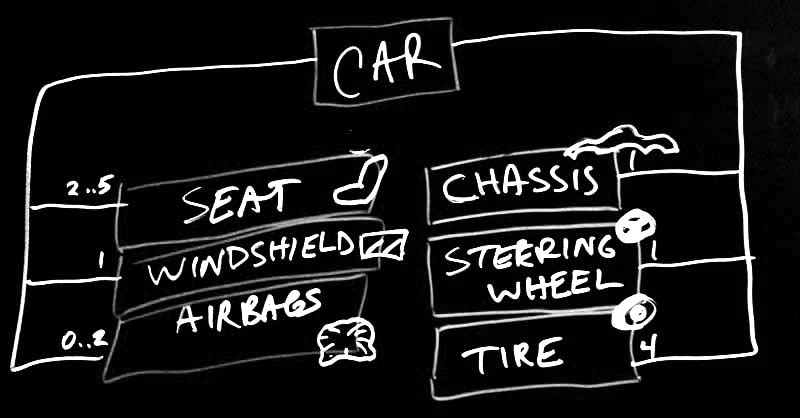 CAR
2..5
SEAT
1
WINDSHIELD
0..2
AIRBAGS
CHASSIS
1
STEERING
WHEEL
1
TIRE
4